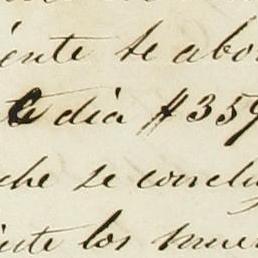 ente se abo
te dia #359
che se concluy
iente los mue